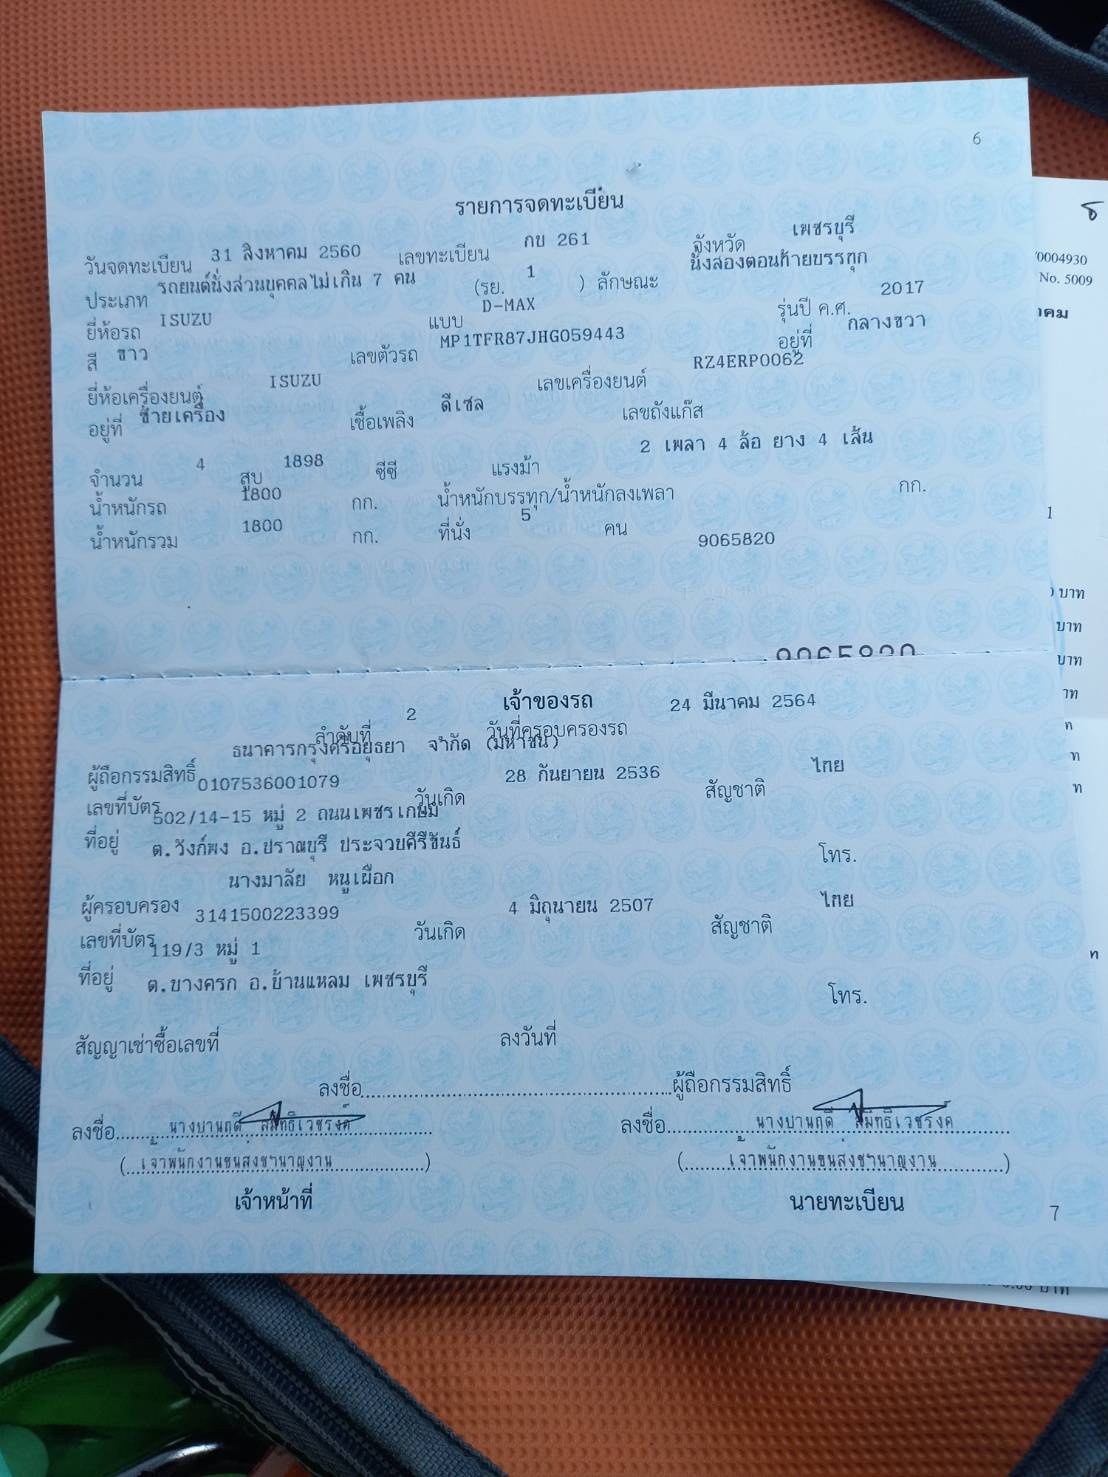 6
รายการจดทะเบียน
วันจดทะเบียน 31 สิงหาคม 2560 เลขทะเบียน กบ 261 จังหวัด เพชรบุรี
ประเภท รถยนต์นั่งส่วนบุคคลไม่เกิน 7 คน (รย. 1 ) ลักษณะ นั่งสองตอนท้ายบรรทุก
ยี่ห้อรถ ISUZU แบบ D-MAX รุ่นปี ค.ศ. 2017
สี ขาว เลขตัวรถ MP1TFR87JHG059443 อยู่ที่ กลางขวา
ยี่ห้อเครื่องยนต์ ISUZU เลขเครื่องยนต์ RZ4ERP0062
อยู่ที่ ซ้ายเครื่อง เชื้อเพลิง ดีเซล เลขถังแก๊ส
จำนวน 4 สูบ 1898 ซีซี แรงม้า 2 เพลา 4 ล้อ ยาง 4 เส้น
น้ำหนักรถ 1800 กก. น้ำหนักบรรทุก/น้ำหนักลงเพลา กก.
น้ำหนักรวม 1800 กก. ที่นั่ง 5 คน
9065820
9065820
เจ้าของรถ
ลำดับที่ 2 วันที่ครอบครองรถ 24 มีนาคม 2564
ผู้ถือกรรมสิทธิ์ ธนาคารกรุงศรีอยุธยา จำกัด (มหาชน)
เลขที่บัตร 0107536001079 วันเกิด 28 กันยายน 2536 สัญชาติ ไทย
ที่อยู่ 502/14-15 หมู่ 2 ถนนเพชรเกษม
ต.วังก์พง อ.ปราณบุรี ประจวบคีรีขันธ์ โทร.
ผู้ครอบครอง นางมาลัย หนูเผือก
เลขที่บัตร 3141500223399 วันเกิด 4 มิถุนายน 2507 สัญชาติ ไทย
ที่อยู่ 119/3 หมู่ 1
ต.บางครก อ.บ้านแหลม เพชรบุรี โทร.
สัญญาเช่าซื้อเลขที่ ลงวันที่
ลงชื่อ ผู้ถือกรรมสิทธิ์
ลงชื่อ นางปานฤดี ลงชื่อ นางปานฤดี
(เจ้าพนักงานขนส่งชำนาญงาน) (เจ้าพนักงานขนส่งชำนาญงาน)
เจ้าหน้าที่ นายทะเบียน
7
0004930
No. 5009
าคม
1
บาท
บาท
บาท